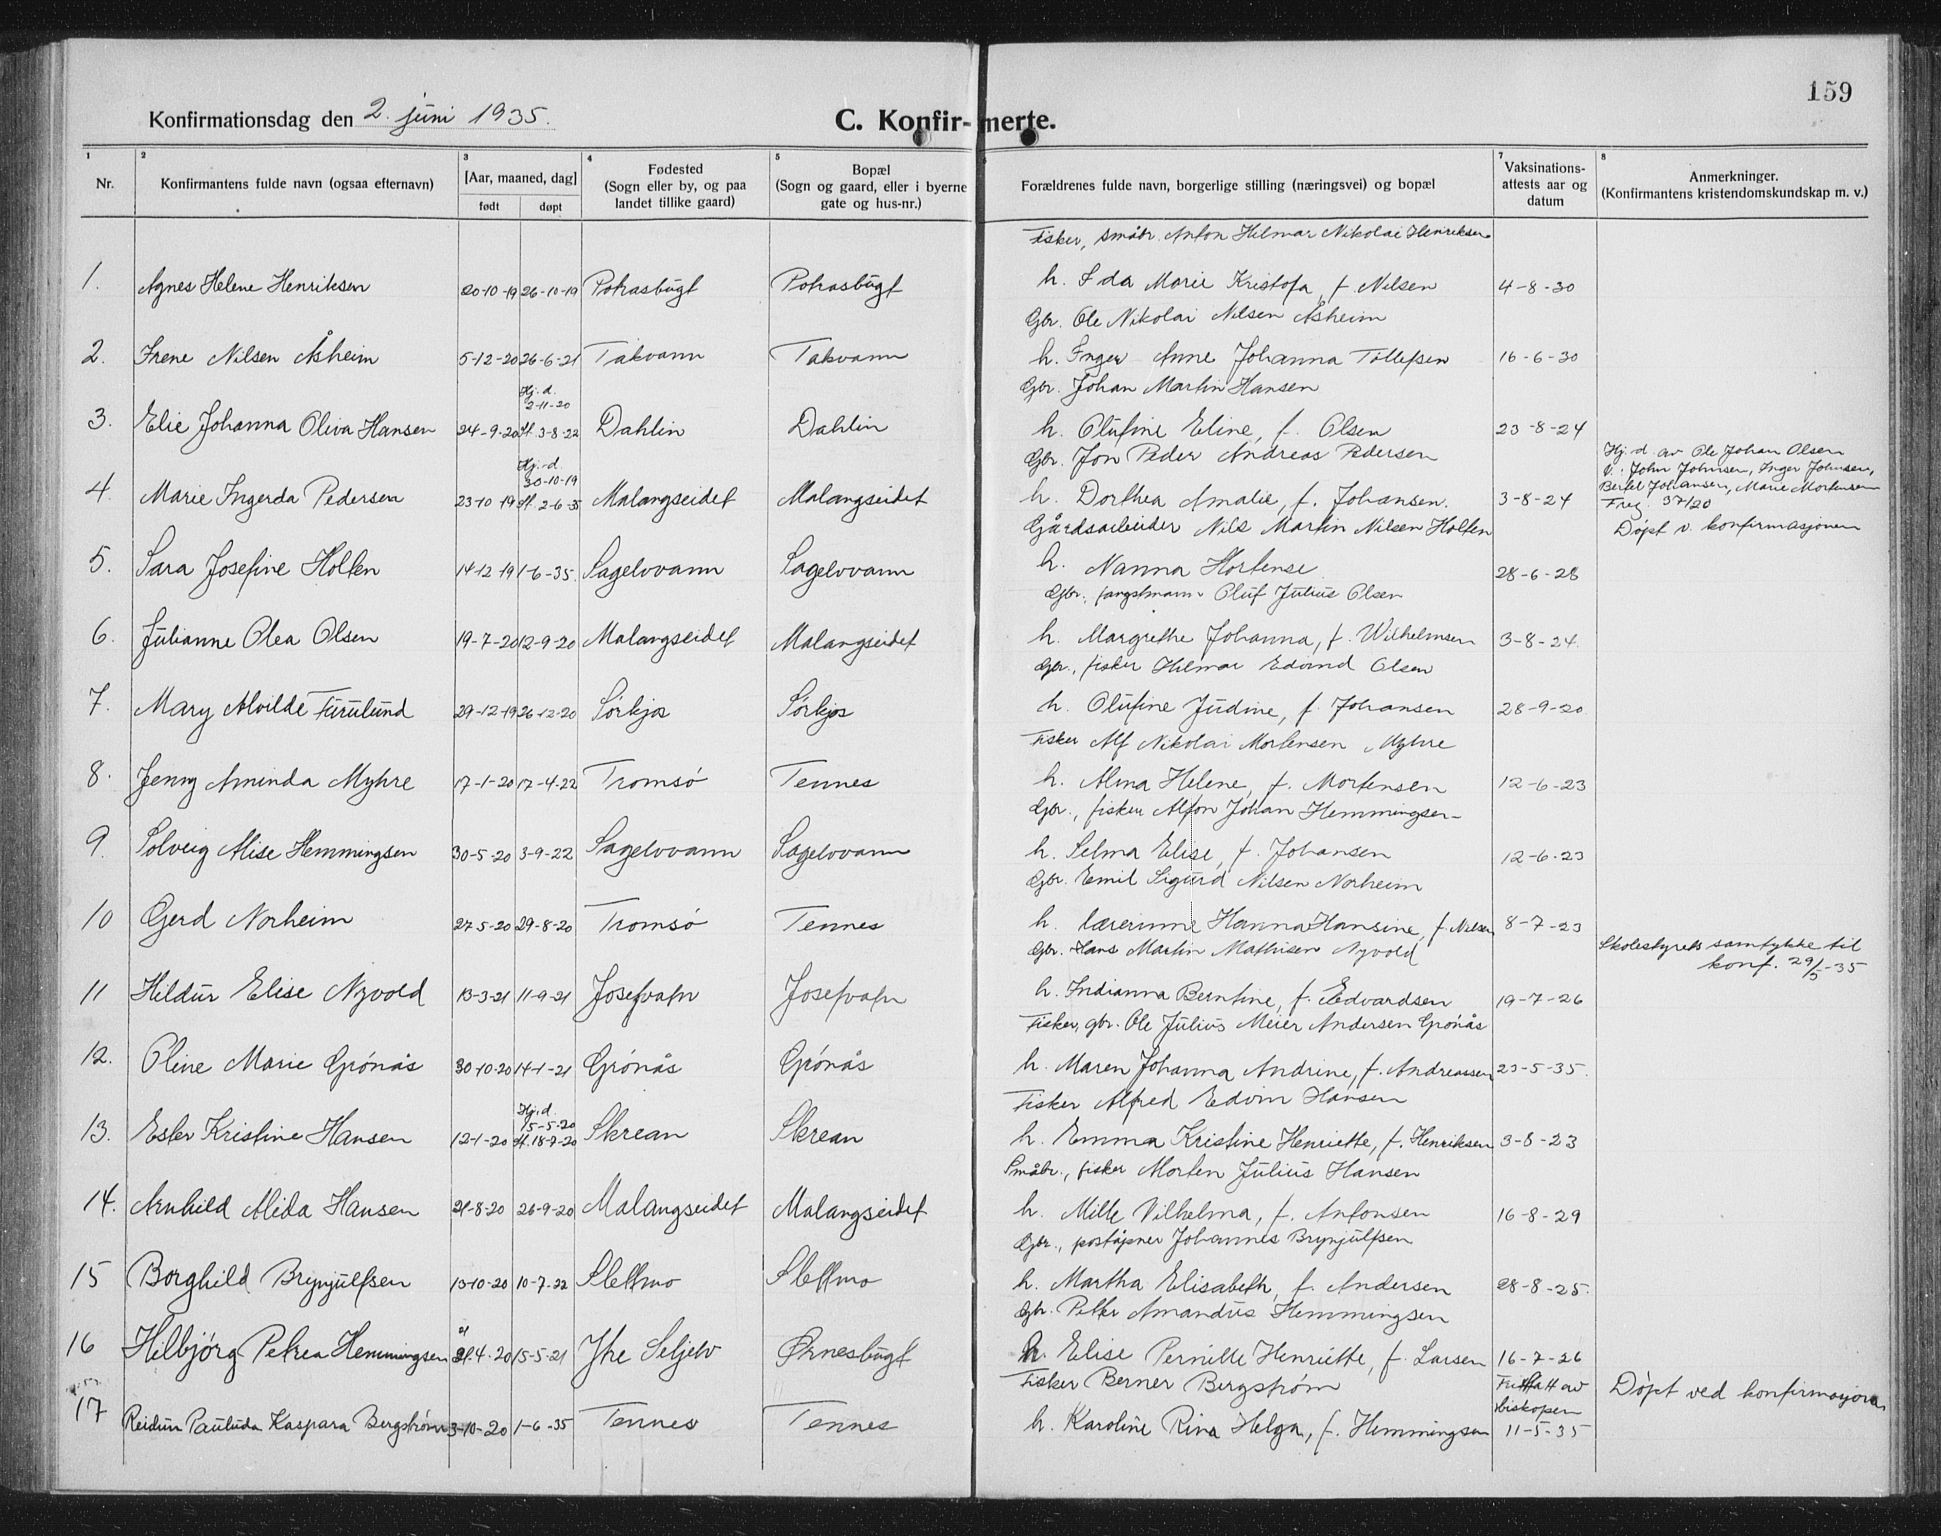 159
Konfirmationsdag den 2. juni 1935.
C. Konfir-merte.
1 2 3 4 5 6 7 8
Nr.
Konfirmantens fulde navn (ogsaa efternavn)
[Aar, maaned, dag]
født døpt
Fødested
(Sogn eller by, og paa
landet tillike gaard)
Bopæl
(Sogn og gaard, eller i byerne
gate og hus-nr.)
Forældrenes fulde navn, borgerlige stilling (næringsvei) og bopæl
Vaksinations-
attests aar og
datum
Anmerkninger.
(Konfirmantens kristendomskundskap m. v.)
Fisker, småbr. Anton Hilmar Nikolai Henriksen
1. Agnes Helene Henriksen 20-10-19 26-10-19 Pokrasbugt Pokrasbugt h. Ida Marie Kristofa, f. Nilsen 4-8-30
Gbr. Ole Nikolai Nilsen Åsheim
2. Irene Nilsen Åsheim 5-12-20 26-6-21 Takvann Takvann h. Inger Anne Johanna Tollefsen 16-6-30
Hj. d.
2-11-20
Gbr. Johan Martin Hansen
3. Elie Johanna Oliva Hansen 24-9-20 st. 3-8-22 Dahlin Dahlin h. Olufine Eline, f. Olsen 23-8-24
Hj. d.
30-10-19
Gbr. Jon Peder Andreas Pedersen
Hj. d. av Ole Johan Olsen
v. John Johnsen, Inger Johnsen,
Bertel Johansen, Marie Mortensen
4. Marie Ingerda Pedersen 23-10-19 st. 2-6-35 Malangseidet Malangseidet h. Dorthea Amalie, f. Johansen. 3-8-24 Freg. 37/20
Gårdsarbeider Nils Martin Nilsen Holten
Døpt v. konfirmasjonen
5. Sara Josefine Holten 14-12-19 1-6-35. Sagelvvann Sagelvvann h. Nanna Hortense 28-6-28
Gbr., fangstmann Oluf Julius Olsen
6. Julianne Olea Olsen 19-7-20 12-9-20 Malangseidet Malangseidet h. Margrethe Johanna, f. Wilhelmsen 3-8-24.
Gbr., fisker Hilmar Edvind Olsen
7. Mary Alvilde Furulund 29-12-19 26-12-20 Sørkjos Sørkjos h. Olufine Judine, f. Johansen 28-9-20
Fisker Alf Nikolai Mortensen Myhre
8. Jenny Aminda Myhre 17-1-20 17-4-22 Tromsø Tennes h. Alma Helene, f. Mortensen 12-6-23
Gbr., fisker Alfon Johan Hemmingsen
9. Solveig Alise Hemmingsen 30-5-20 3-9-22 Sagelvvann Sagelvvann h. Selma Elise, f. Johansen 12-6-23
Gbr. Emil Sigurd Nilsen Norheim
10 Gerd Norheim 27-5-20 29-8-20 Tromsø Tennes h. lærerinne Hanna Hansine, f. Nilsen 8-7-23
Gbr. Hans Martin Mathisen Nyvold
Skolestyrets samtykke til
konf. 29/5-35
11 Hildur Elise Nyvold 13-3-21 11-9-21 Josefvatn Josefvatn h. Indianna Berntine, f. Edvardsen 19-7-26
Fisker, gbr. Ole Julius Meier Andersen Grønås
12. Oline Marie Grønås 30-10-20 14-1-21 Grønås Grønås h. Maren Johanna Andrine, f. Andreassen 23-5-35.
Hj. d.
15-5-20
Fisker Alfred Edvin Hansen
13. Ester Kristine Hansen 12-1-20 st. 18-7-20 Skrean Skrean h. Emma Kristine Henriette, f. Henriksen 3-8-23
Småbr., fisker Morten Julius Hansen
14. Arnhild Alida Hansen 21-8-20 26-9-20 Malangseidet Malangseidet h. Mille Vilhelma, f. Antonsen 16-8-29
Gbr., poståpner Johannes Brynjulfsen
15 Borghild Brynjulfsen 13-10-20 10-7-22 Slettmo Slettmo h. Martha Elisabeth, f. Andersen 28-8-25.
Gbr. Petter Amandus Hemmingsen
16 Hilbjørg Petrea Hemmingsen 21-4-20 15-5-21 Ytre Seljelv Ørnesbugt h. Elise Pernille Henriette, f. Larsen 16-7-26
Fisker Berner Bergstrøm
Fritatt av
biskopen
Døpt ved konfirmasjonen
17 Reidun Pauluda Kaspara Bergstrøm 3-10-20 1-6-35 Tennes Tennes h. Karoline Rina Helga, f. Hemmingsen 11-5-35